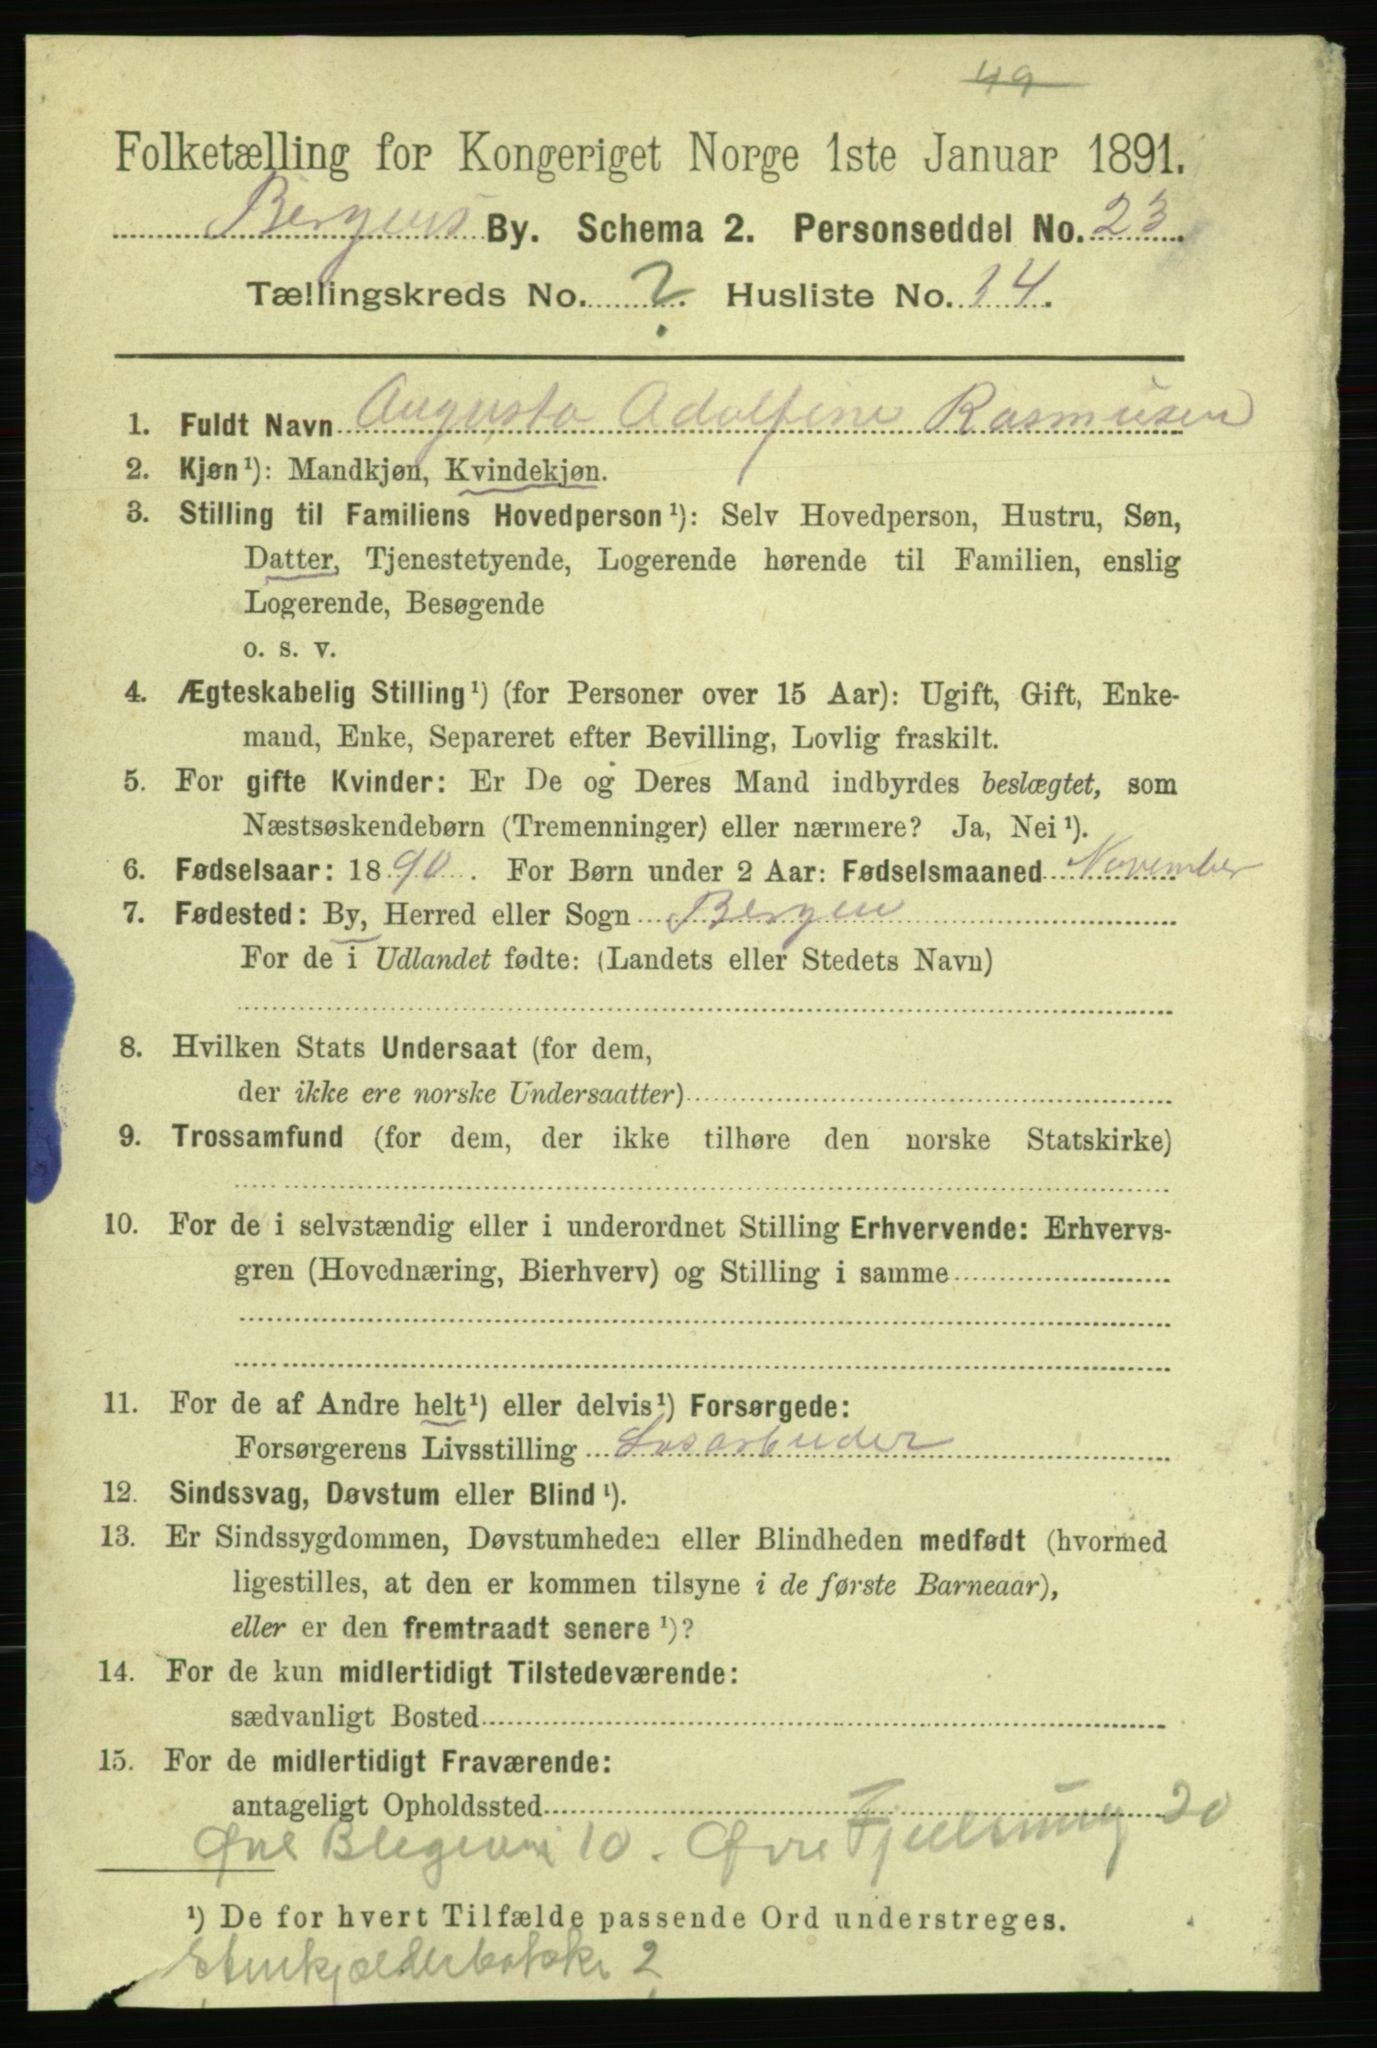 49
Folketælling for Kongeriget Norge 1ste Januar 1891.
Bergens By. Schema 2. Personseddel No. 23.
Tællingskreds No. ?. Husliste No. 14.
1. Fuldt Navn Augusta Adolfine Rasmusen
2. Kjøn¹): Mandkjøn, Kvindekjøn.
3. Stilling til Familiens Hovedperson¹): Selv Hovedperson, Hustru, Søn,
Datter, Tjenestetyende, Logerende hørende til Familien, enslig
Logerende, Besøgende
o. s. v.
4. Ægteskabelig Stilling¹) (for Personer over 15 Aar): Ugift, Gift, Enke-
mand, Enke, Separeret efter Bevilling, Lovlig fraskilt.
5. For gifte Kvinder: Er De og Deres Mand indbyrdes beslægtet, som
Næstsøskendebørn (Tremenninger) eller nærmere? Ja, Nei¹).
6. Fødselsaar: 1890. For Børn under 2 Aar: Fødselsmaaned November
7. Fødested: By, Herred eller Sogn Bergen
For de i Udlandet fødte: (Landets eller Stedets Navn)
8. Hvilken Stats Undersaat (for dem,
der ikke ere norske Undersaatter)
9. Trossamfund (for dem, der ikke tilhøre den norske Statskirke)
10. For de i selvstændig eller i underordnet Stilling Erhvervende: Erhvervs-
gren (Hovednæring, Bierhverv) og Stilling i samme
11. For de af Andre helt¹) eller delvis¹) Forsørgede:
Forsørgerens Livsstilling Løsarbeider
12. Sindssvag, Døvstum eller Blind¹).
13. Er Sindssygdommen, Døvstumheden eller Blindheden medfødt (hvormed
ligestilles, at den er kommen tilsyne i de første Barneaar),
eller er den fremtraadt senere¹)?
14. For de kun midlertidigt Tilstedeværende:
sædvanligt Bosted
15. For de midlertidigt Fraværende:
antageligt Opholdssted
Øvre 10. Øvre 20
¹) De for hvert Tilfælde passende Ord understreges.
2